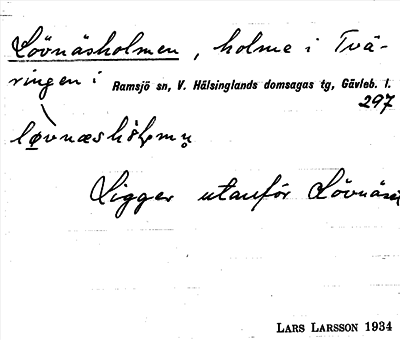 Lövnäsholmen, holme i Tvä-
ringen i Ramsjö sn, V. Hälsinglands domsagas tg, Gävleb. l.
297
Ligger utanför Lövnäset
LARS LARSSON 1934